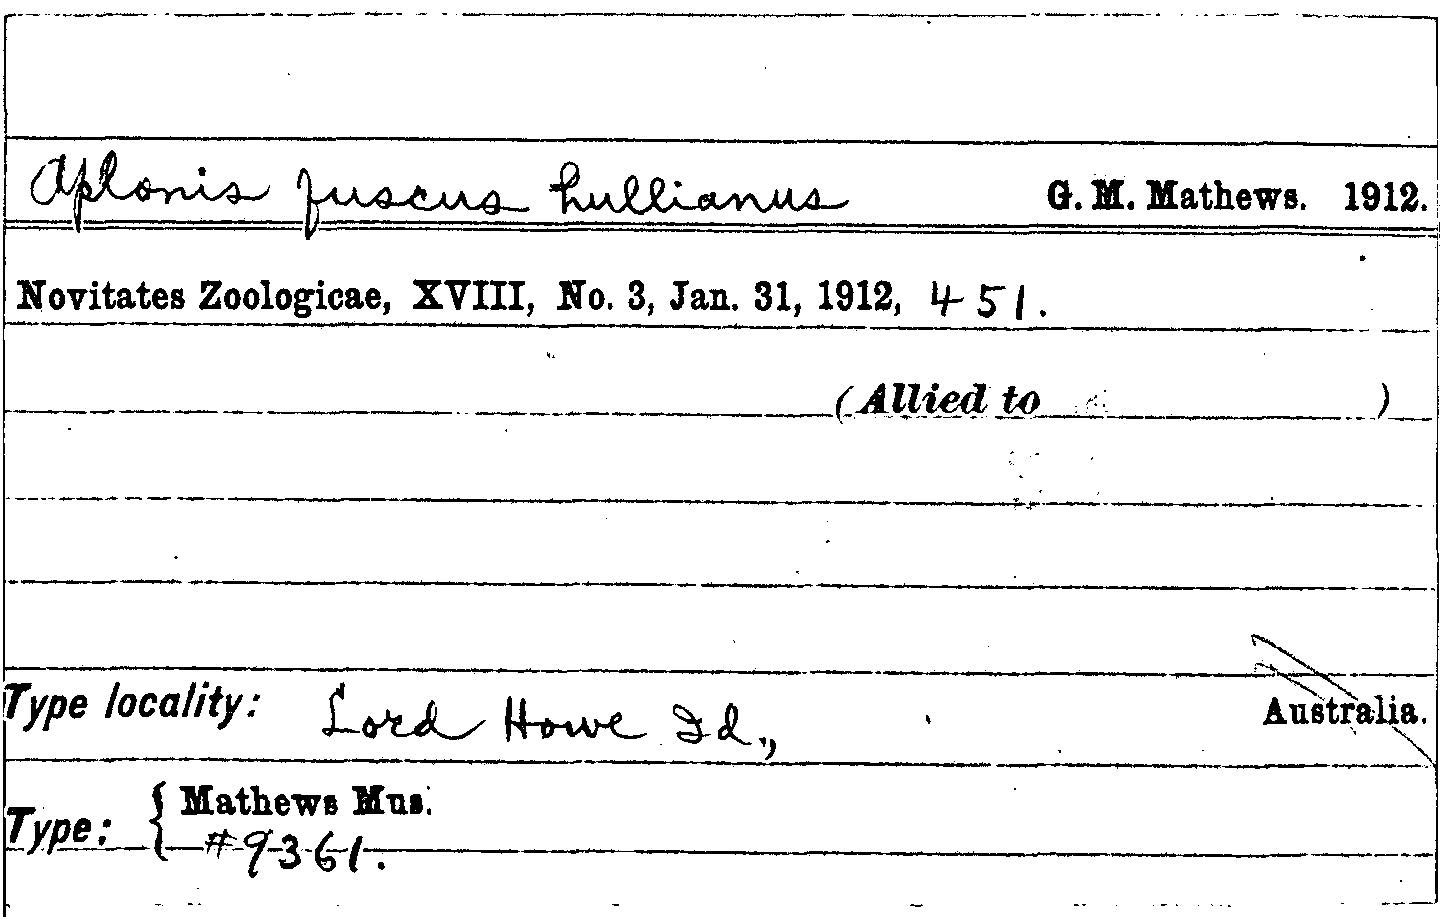 Aplonis fuscus hullianus G. M. Mathews. 1912.
Novitates Zoologicae, XVIII, No. 3, Jan. 31, 1912, 451.
(Allied to )
Type locality: Lord Howe Id., Australia.
Type: { Mathews Mus.
#9361.